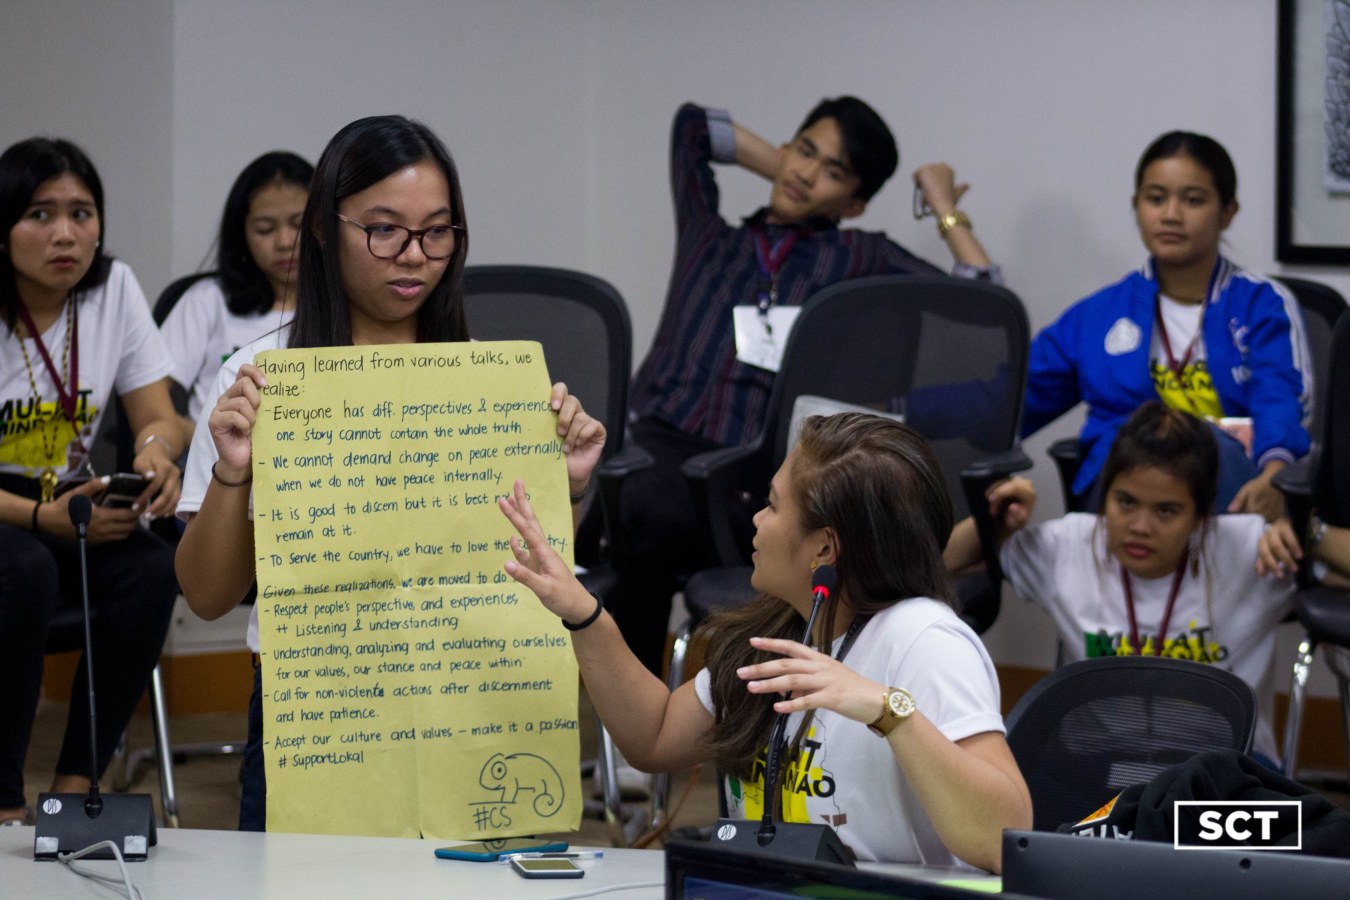 Having learned from various talks, we
realize:
- Everyone has diff. perspectives & experience
one story cannot contain the whole truth
- We cannot demand change on peace externally
when we do not have peace internally.
- It is good to discern but it is best
remain at it.
- To serve the country, we have to love the
Given these realizations, we are moved to do
- Respect people's perspectives and experiences,
++ Listening & understanding
- understanding, analyzing and evaluating ourselves
for our values, our stance and peace within
- Call for non-violent actions after discernment
and have patience.
- Accept our culture and values - make it a passion
# SupportLokal
#CS
MULAT
MINDANAO
MULAT
SCT